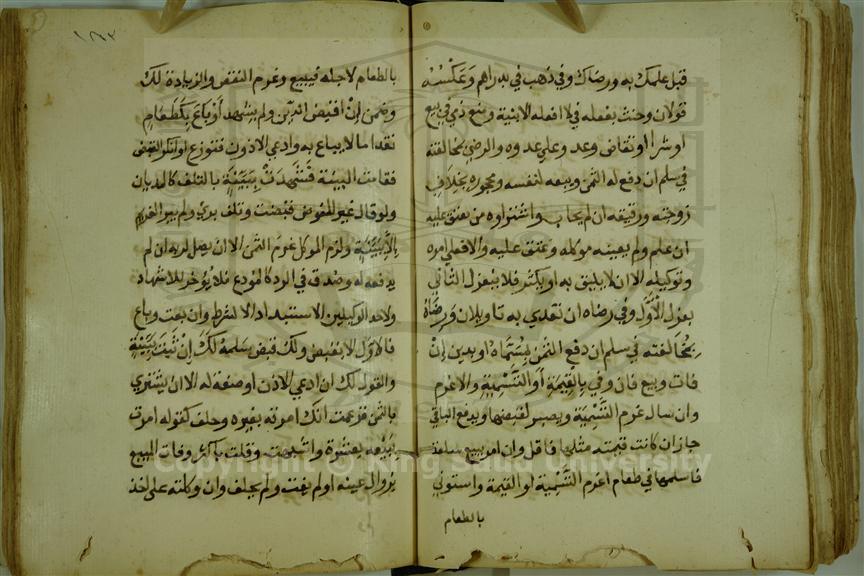 قبل علمك به ورضاك وفي ذهب في بدراهم وَعَكْسُهُ
قولان وحنث بفعله في لا افعله الابنية ومنع ذي في بيع
او شرا او تقاض وعد وعلي عدوه والرضي بمخالفته
في سلم ان دفع له الثمن وبيعه لنفسه ومحجوره بخلاف
زوجته ورقيقه ان لم يحاب واشتراوه من يعتق عليه
ان علم ولم يعينه موكله وعتق عليه والا فعلي امره
وتوكيله الا ان لا يليق به او يكثر فلا ينعزل الثاني
بعزل الْأَوَّل وفي رضاه ان تعدي به تاويلان وَرِضَاهُ
بِمُخَالفته في سلم ان دفع الثمن بِمُسَمَّاهُ او بدين إنْ
فات وبيع فان وفي بِالقِيمَةِ أَوِ التَّسْمِيَةِ والا غرم
وان سال غرم التَّسْمِيَة ويصبر لقبضها ويدفع الباقي
جاز ان كانت قيمته مثلها فاقل وان امر ببيع سلعة
فاسلمها في طعام اغرم التَّسْمِيَة او القيمة واستوني
بالطعام
١٨٣
بالطعام لاجله فيبيع وغرم النقص والزيادة لك
وضمن إنْ اقبض الدين ولم يشهد أوْ باعَ بِكَطَعَامٍ
نقدا ما لا يباع به وادعي الاذن فنوزع او انكر القبض
فقامت البينة فَشَهِدَتْ بِبَيِّنَةٍ بالتلف كالمديان
ولو قال غير المفوض قبضت وتلف بري ولم يبر الغريم
إِلَّا بِبَيِّنَةٍ ولزم الموكل غرم الثمن الا ان يصل لربه ان لم
يدفعه له وصدق في الرد كالمودع فلا يُؤخر للاشهاد
ولاحد الوكيلين الاستبداد الا لشرط وان بعت وباع
فالاوّل الا بقبض ولك قبض سلمه لَكَ إنْ ثَبَتَ بِبَيِّنَةٍ
والقول لك ان ادعي الاذن او صفة له الا ان يشتري
بالثمن فزعمت انك امرته بغيره وحلف كقوله امرت
بِبَيْعه بعشَرة واشبهت وقلت بأكثر وفات المبيع
بزوال عينه او لم يفت ولم يحلف وان وكلته على اخذ
Copyright © King Saud University